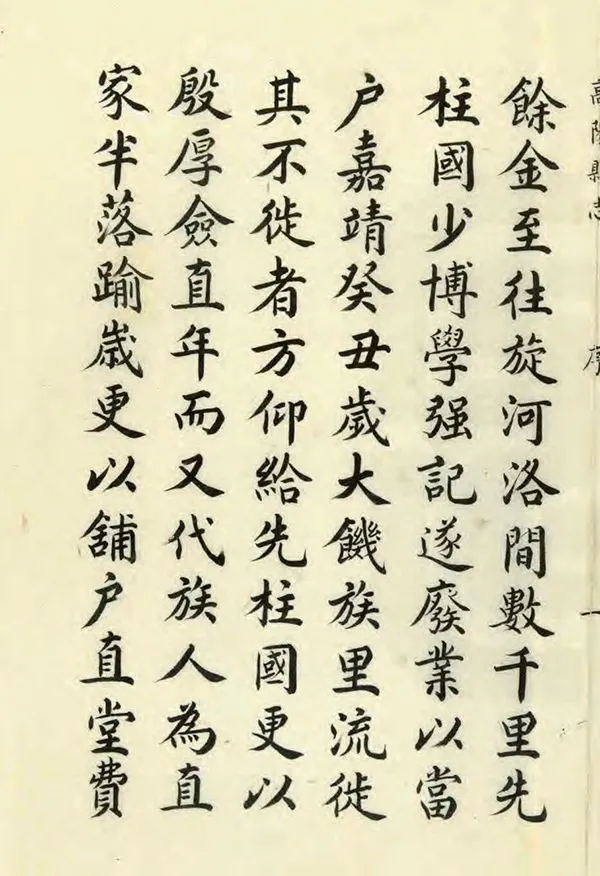 高陽縣志
序
一
餘金至往旋河洛間數千里先
柱國少博學强記遂廢業以當
户嘉靖癸丑歲大饑族里流徙
其不徙者方仰給先柱國更以
殷厚僉直年而又代族人為直
家半落踰歲更以舖户直堂費